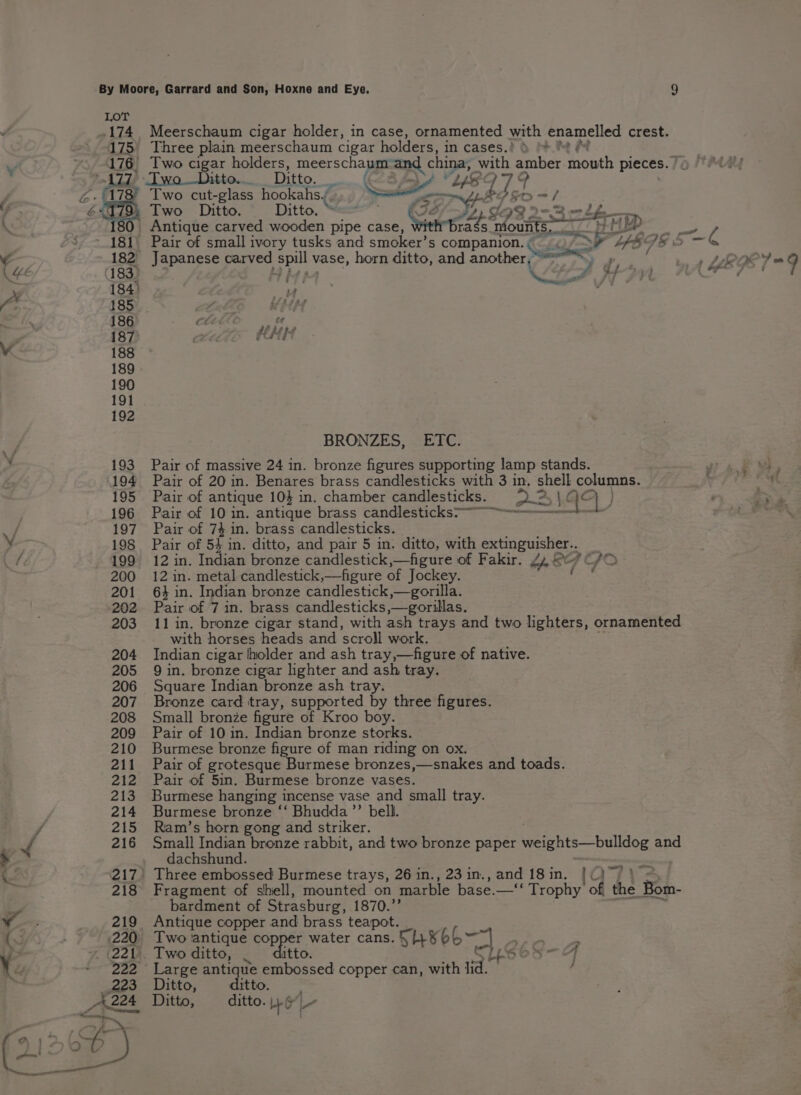 By Moore, Garrard and Son, Hoxne and Eye. 9
LOT
174 Meerschaum cigar holder, in case, ornamented with enamelled crest.
175 Three plain meerschaum cigar holders, in cases.
176 Two cigar holders, meerschaum and china, with amber mouth pieces.
177 Two Ditto. Ditto.
178 Two cut-glass hookahs.
179 Two Ditto. Ditto.
180 Antique carved wooden pipe case, with brass mounts.
181 Pair of small ivory tusks and smoker's companion.
182 Japanese carved spill vase, horn ditto, and another.
183
184
185
186
187
188
189
190
191
192
BRONZES, ETC.
193 Pair of massive 24 in. bronze figures supporting lamp stands.
194 Pair of 20 in. Benares brass candlesticks with 3 in. shell columns.
195 Pair of antique 10½ in. chamber candlesticks.
196 Pair of 10 in. antique brass candlesticks.
197 Pair of 7½ in. brass candlesticks.
198 Pair of 5½ in. ditto, and pair 5 in. ditto, with extinguisher..
199 12 in. Indian bronze candlestick,—figure of Fakir.
200 12 in. metal candlestick,—figure of Jockey.
201 6½ in. Indian bronze candlestick,—gorilla.
202 Pair of 7 in. brass candlesticks,—gorillas.
203 11 in. bronze cigar stand, with ash trays and two lighters, ornamented
with horses heads and scroll work.
204 Indian cigar holder and ash tray,—figure of native.
205 9 in. bronze cigar lighter and ash tray.
206 Square Indian bronze ash tray.
207 Bronze card tray, supported by three figures.
208 Small bronze figure of Kroo boy.
209 Pair of 10 in. Indian bronze storks.
210 Burmese bronze figure of man riding on ox.
211 Pair of grotesque Burmese bronzes,—snakes and toads.
212 Pair of 5in. Burmese bronze vases.
213 Burmese hanging incense vase and small tray.
214 Burmese bronze “ Bhudda ” bell.
215 Ram's horn gong and striker.
216 Small Indian bronze rabbit, and two bronze paper weights—bulldog and
dachshund.
217 Three embossed Burmese trays, 26 in., 23 in., and 18 in.
218 Fragment of shell, mounted on marble base.—“ Trophy of the Bom-
bardment of Strasburg, 1870.”
219 Antique copper and brass teapot.
220 Two antique copper water cans.
221 Two ditto, ditto.
222 Large antique embossed copper can, with lid.
223 Ditto, ditto.
224 Ditto, ditto.